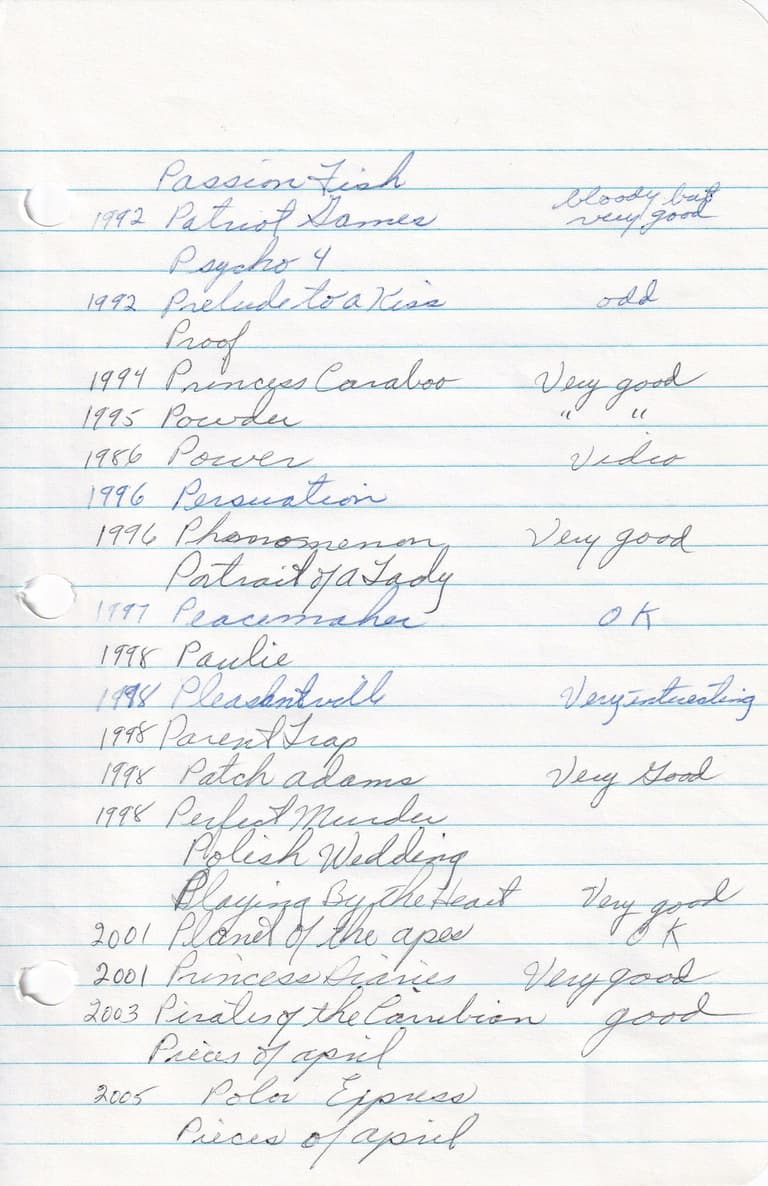 Passion Fish
1992 Patriot Games bloody but very good
Psycho 4
1992 Prelude to a Kiss odd
Proof
1994 Princess Caraboo Very good
1995 Powder " "
1986 Power Video
1996 Persuation
1996 Phanomenon Very good
Portrait of a Lady
1997 Peacemaker OK
1998 Paulie
1998 Pleasentville Very interesting
1998 Parent Trap
1998 Patch adams Very Good
1998 Perfect Murder
Polish Wedding
Playing By the Heart Very good
2001 Planet of the apes OK
2001 Princess Diaries Very good
2003 Pirates of the Carribian good
Pieces of april
2005 Polor Express
Pieces of april